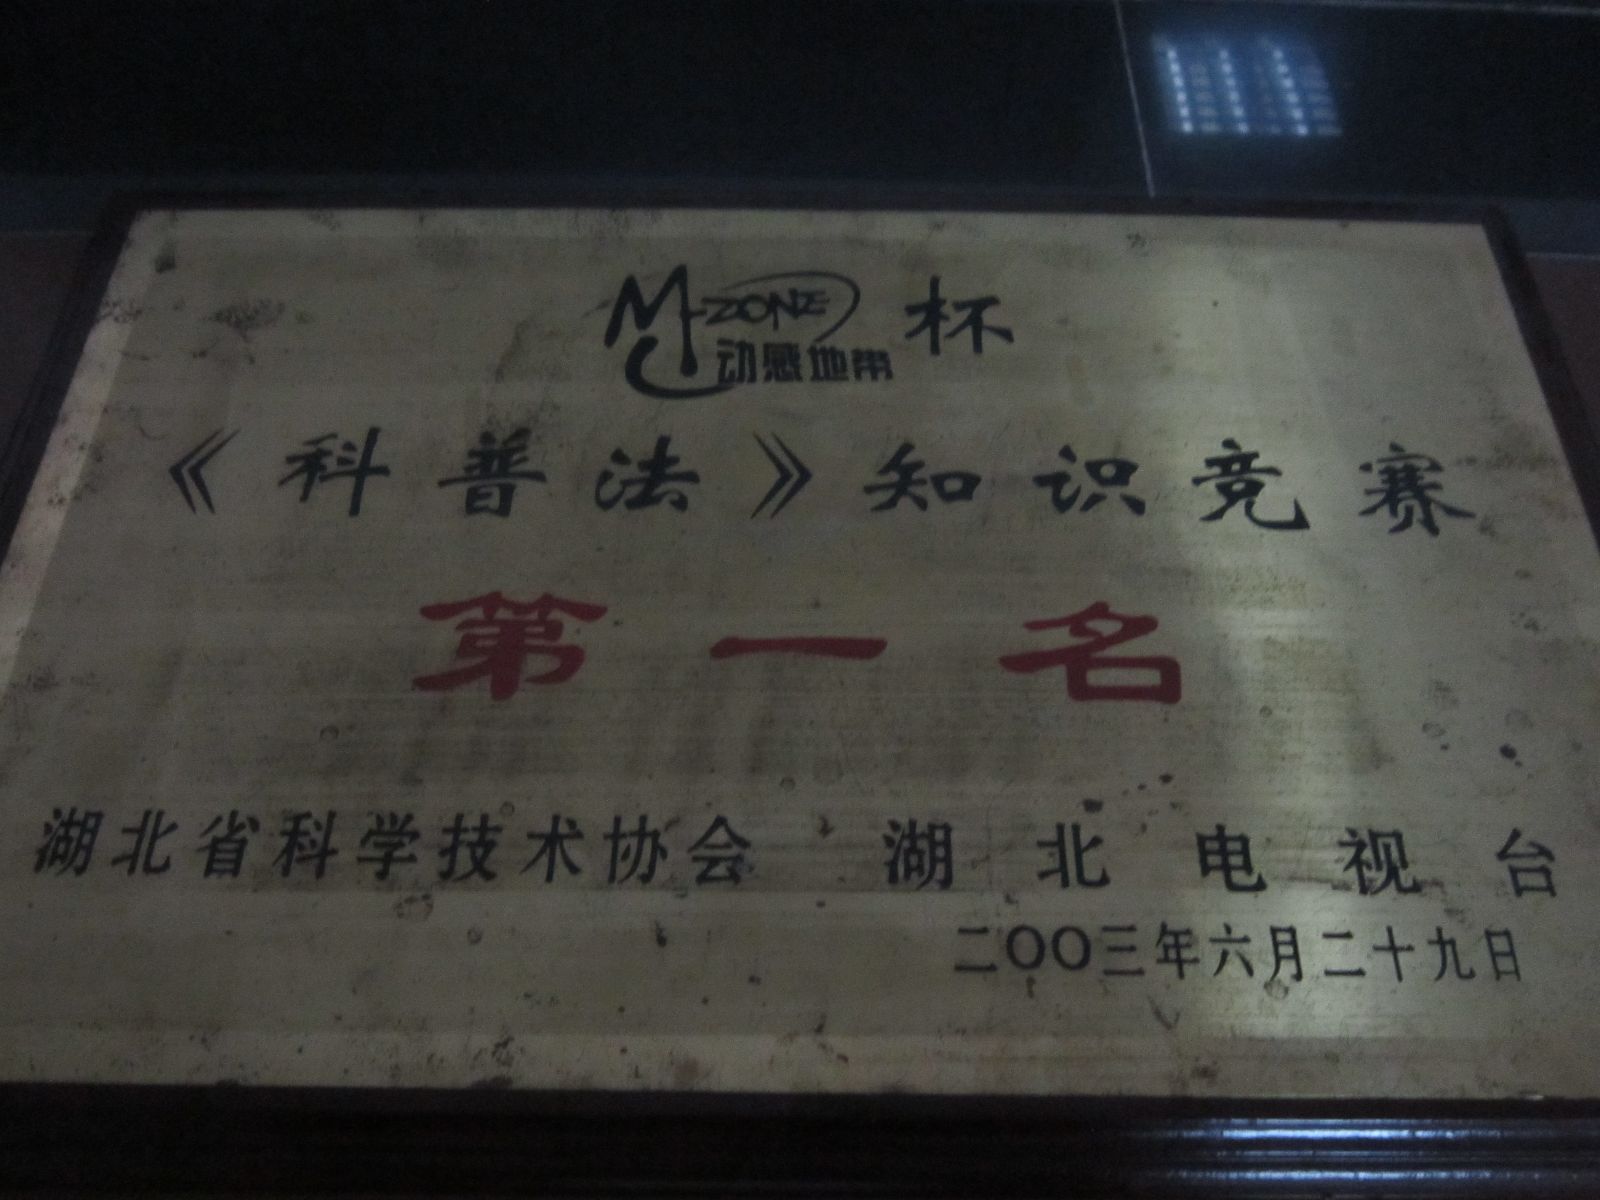 M-ZONE 动感地带 杯
《科普法》知识竞赛
第一名
湖北省科学技术协会 湖北电视台
二〇〇三年六月二十九日